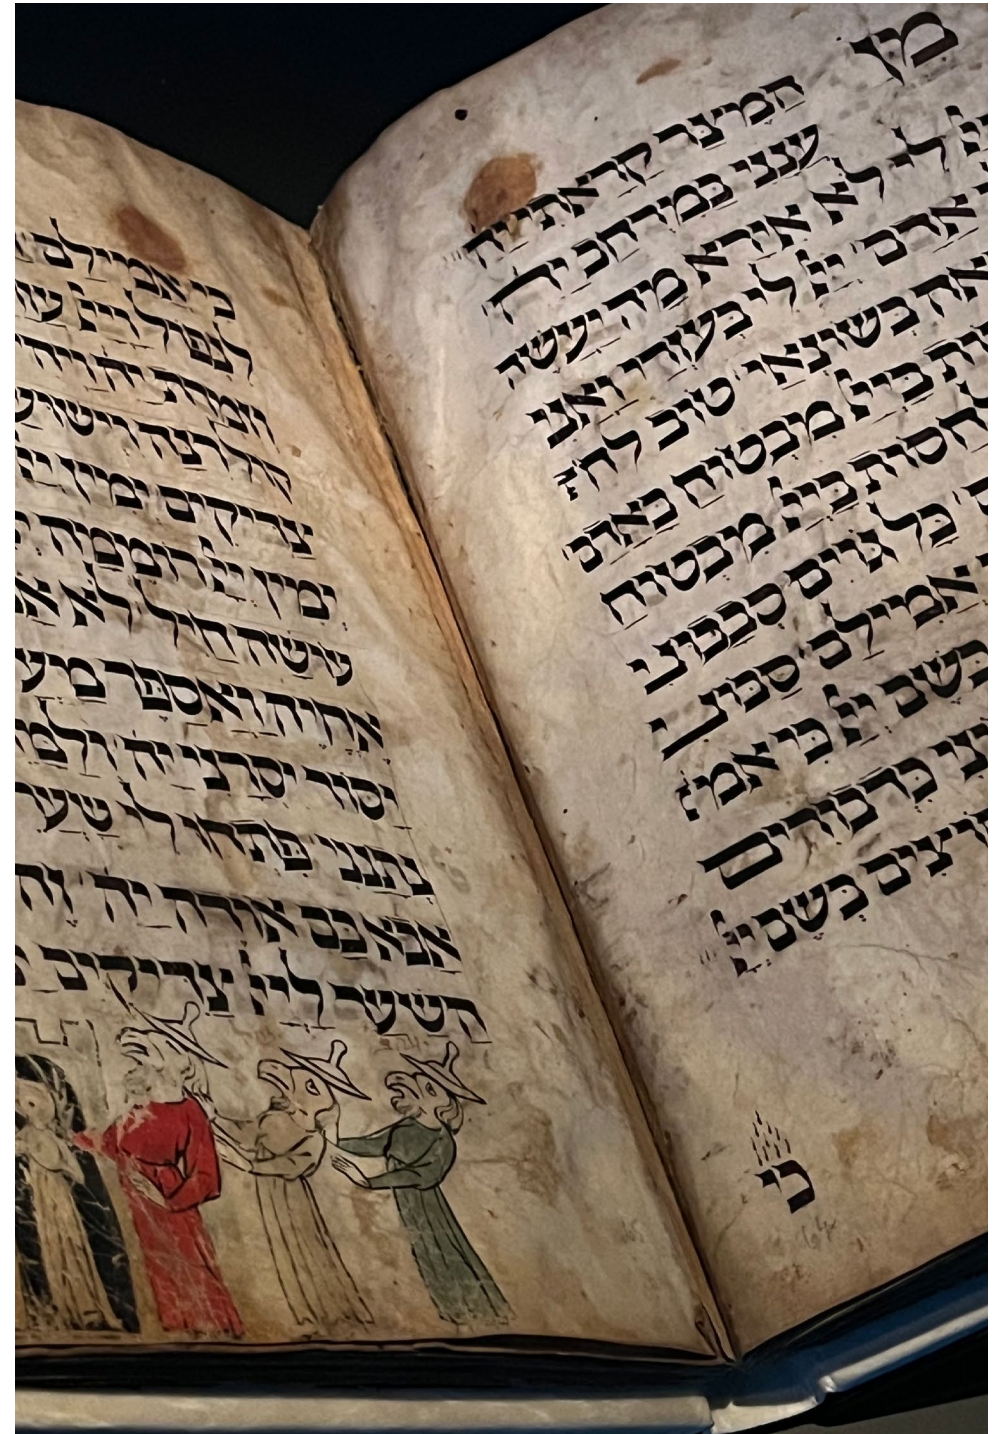 מן
המיצר קראתי יה
ענני במרחב יה
לי לא אירא מה יעשה
אדם ייי לי בעוזרי ואני
בשונאי טוב לח
ביי מבטוח באדם
לחסות ביי מבטוח
כל גוים סבבוני
אמילם סבוני
בשם יי כי אמי
כדבורים
קוצים בשם יי
כי
כי אמילם
לנפול ויי
וזמרת יה ויהי
קול רנה וישוע
צדיקים ימין
ימין יי רוממה
עושה חיל לא
אחיה ואספר
יסור יסרני יה
נתנני פתחו לי שער
אבא בם אודה יה זה
השער ליי צדיקים